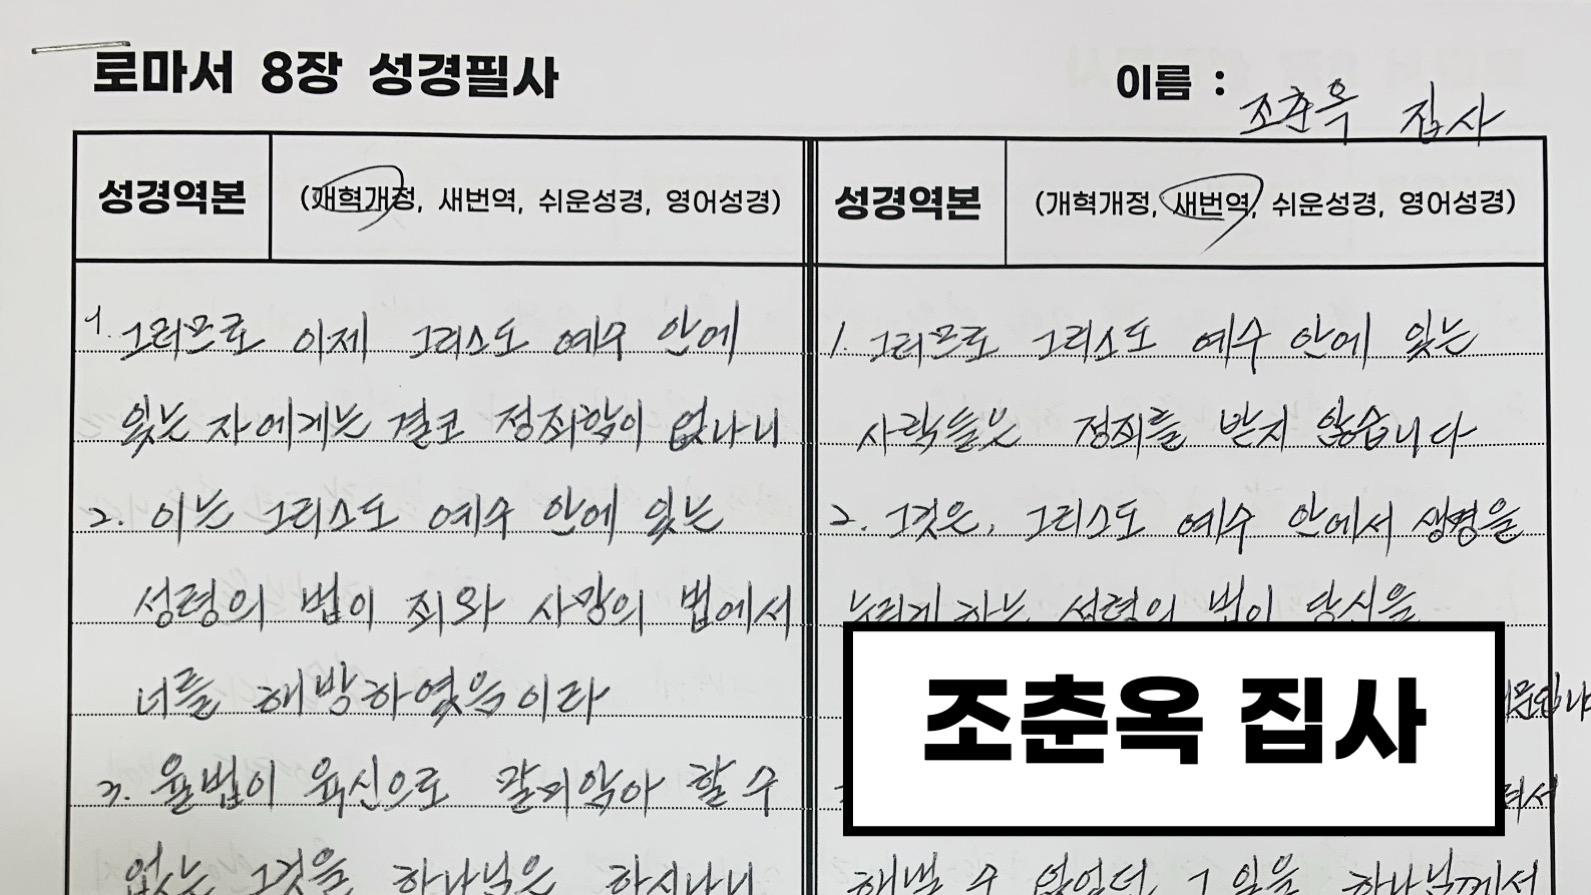 로마서 8장 성경필사
이름 : 조춘옥 집사
성경역본 (개혁개정, 새번역, 쉬운성경, 영어성경)
1. 그러므로 이제 그리스도 예수 안에
있는 자에게는 결코 정죄함이 없나니
2. 이는 그리스도 예수 안에 있는
성령의 법이 죄와 사망의 법에서
너를 해방하였음이라
3. 율법이 육신으로 말미암아 할 수
없는 그것을 하나님은 하시나니
성경역본 (개혁개정, 새번역, 쉬운성경, 영어성경)
1. 그러므로 그리스도 예수 안에 있는
사람들은 정죄를 받지 않습니다
2. 그것은, 그리스도 예수 안에서 생명을
누리게 하는 성령의 법이 당신을
해낼 수 없었던 그 일을 하나님께서
조춘옥 집사